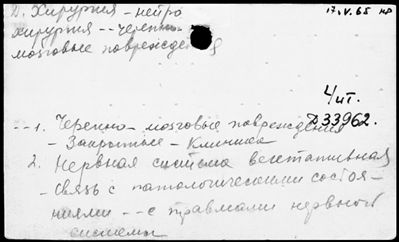 Д. Хирургия - нейро
хирургия -- черепно-
мозговые повреждения
17.V.65 нр
4 шт.
Д33962.
-- 1. Черепно-мозговые повреждения
- Закрытые - Клиника
2. Нервная система вегетативная
- связь с патологическими состоя-
ниями -- с травмами нервной
системы